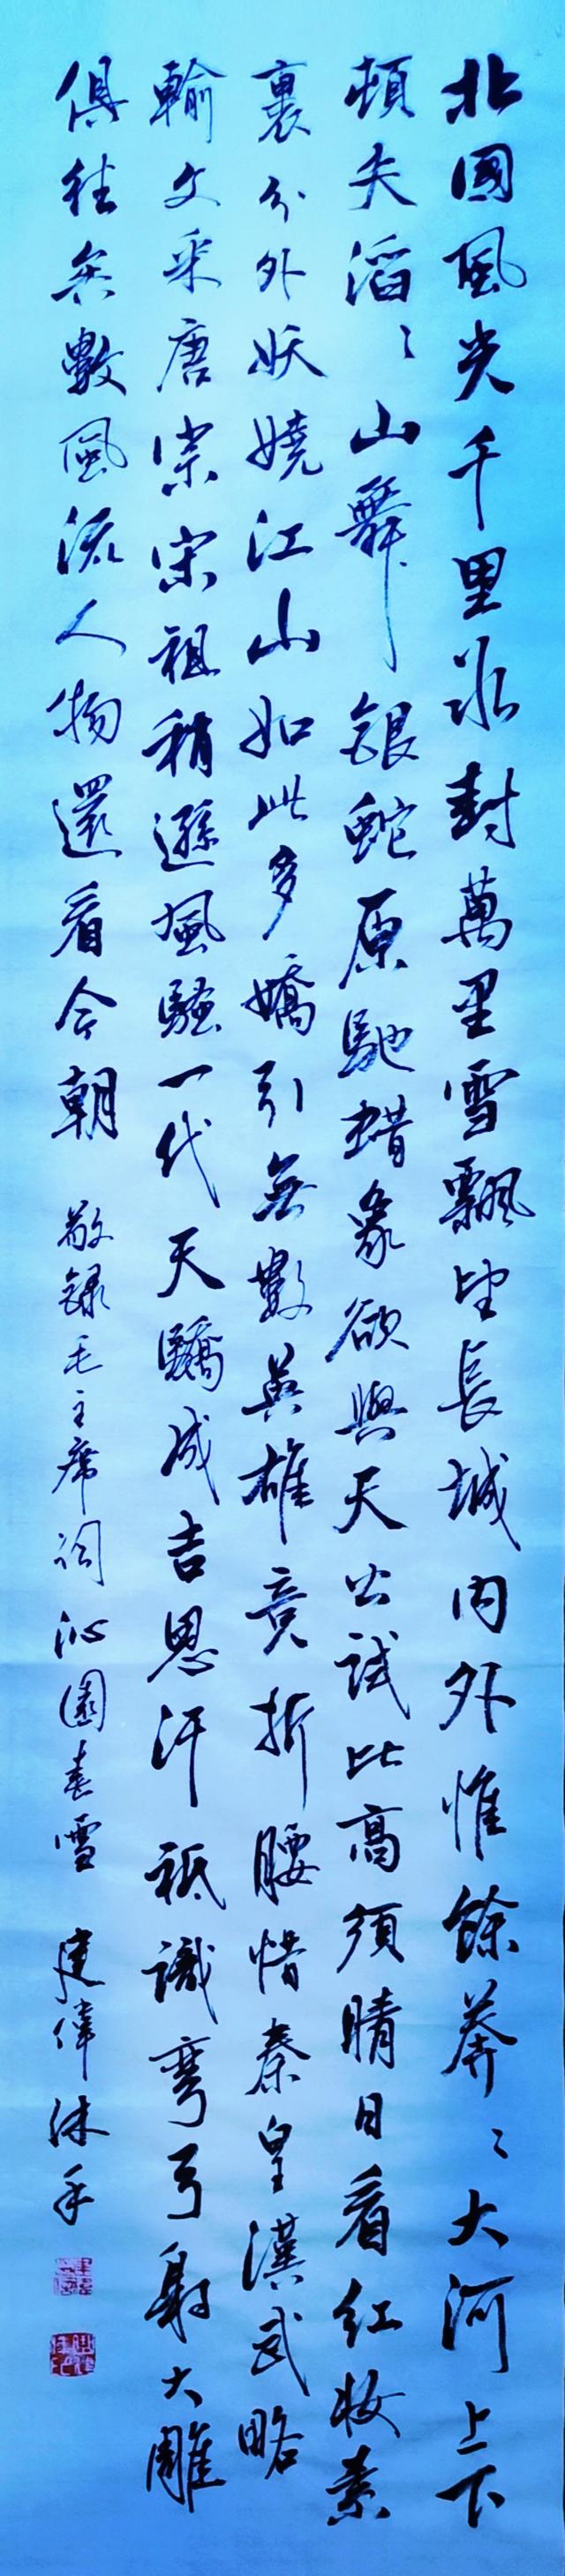 北國風光千里冰封萬里雪飄望長城内外惟餘莽〻大河上下
頓失滔〻山舞銀蛇原馳蜡象欲與天公試比高須晴日看红妝素
裹分外妖嬈江山如此多嬌引無數英雄竞折腰惜秦皇漢武略
輸文采唐宗宋祖稍遜風騷一代天驕成吉思汗祗識彎弓射大雕
俱往矣數風流人物還看今朝 敬録毛主席词沁園春雪 建偉沐手